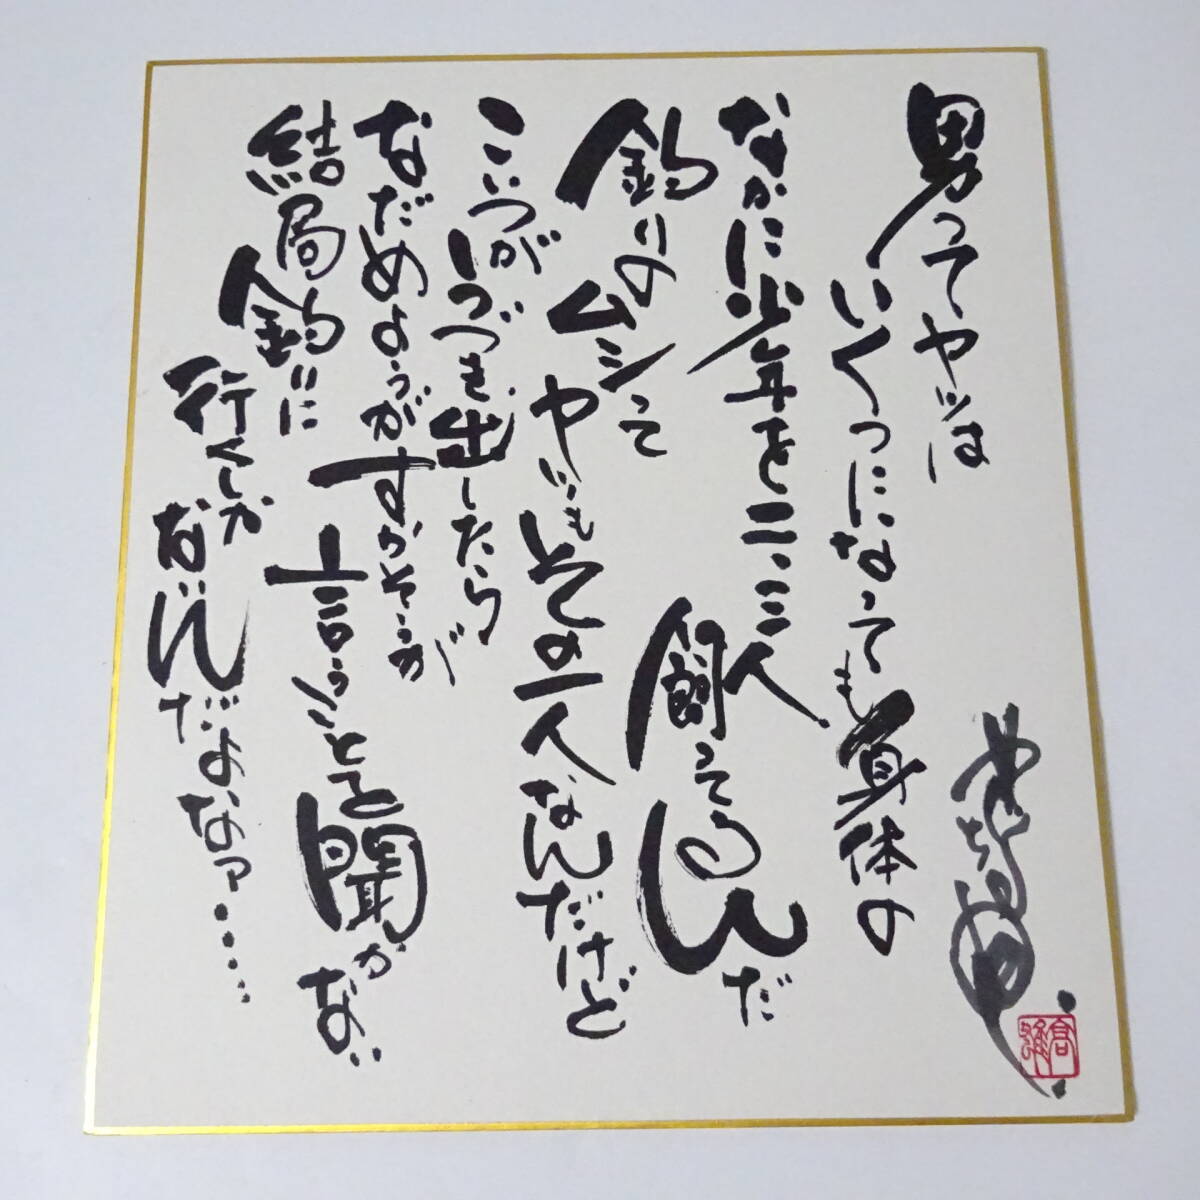 男ってヤツは
いくつになっても身体の
なかに少年を二、三人
飼ってるんだ
釣りのムシって
ヤツもその一人なんだけど
こいつが
うづき出したら
なだめようがすかそうが
言うことを聞かない
結局釣に
行くしか
ないんだよなァ・・・・・